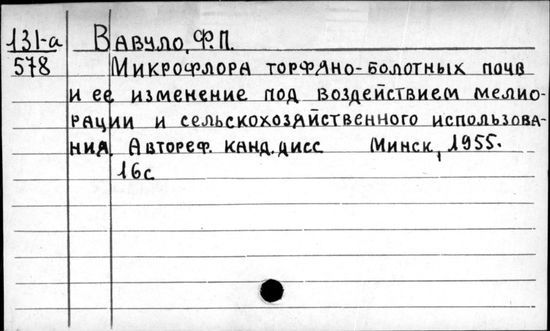 131-а Вавуло, Ф.П.
578 Микрофлора торфяно-болотных почв
и ее изменение под воздействием мелио-
рации и сельскохозяйственного использова-
ния. Автореф. канд. дисс Минск, 1955.
16с